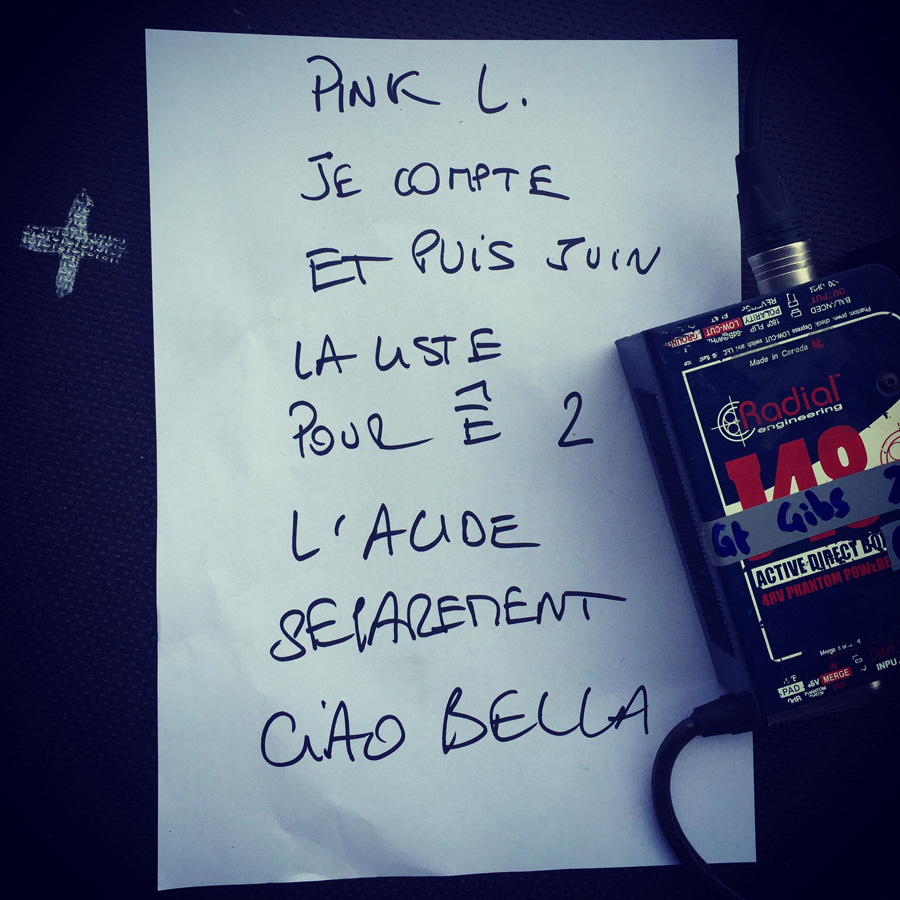 PINK L.
JE COMPTE
ET PUIS JUIN
LA LISTE
POUR Ê 2
L'ACIDE
SEPAREMENT
CIAO BELLA
BALANCED
OUTPUT
POLARITY
180° FLIP
LOW-CUT
Made in Canada
Radial
engineering
J48
Gt Gibs
ACTIVE DIRECT BOX
48V PHANTOM POWERED
PAD
MERGE
INPU